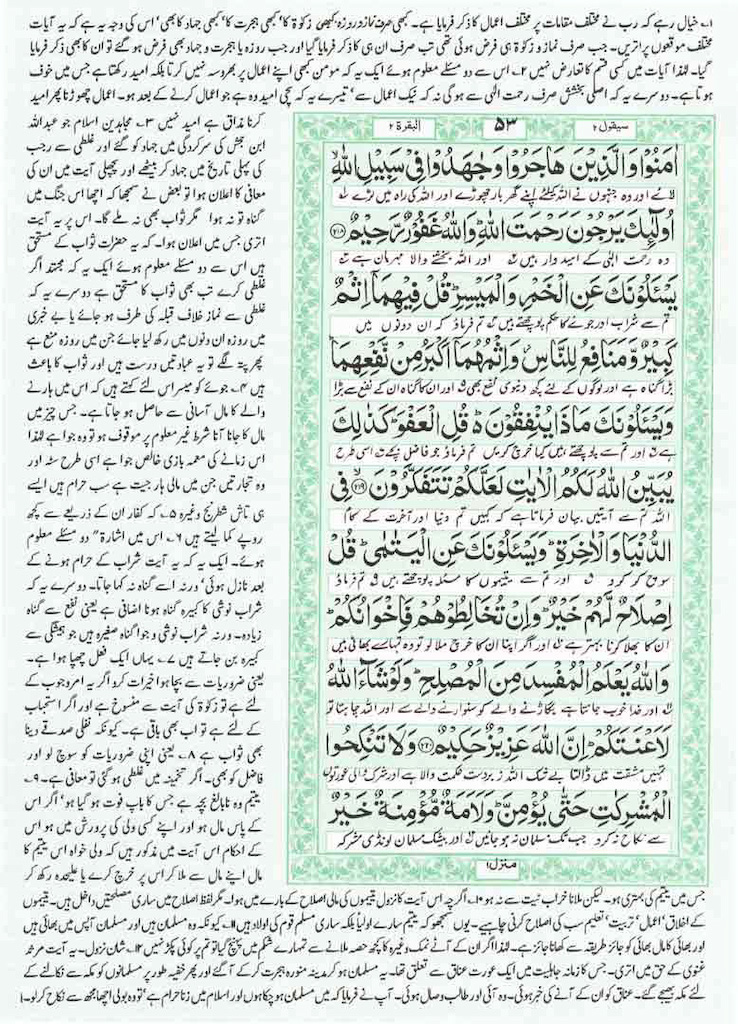 ۱۔ خیال رہے کہ رب نے مختلف مقامات پر مختلف اعمال کا ذکر فرمایا ہے۔ کبھی صرف نماز و روزہ کبھی زکوٰۃ کا' کبھی ہجرت کا' کبھی جہاد کا بھی' اس کی وجہ یہ ہے کہ یہ آیات
مختلف موقعوں پر اتریں۔ جب صرف نماز و زکوٰۃ ہی فرض ہوئی تھی تب صرف ان ہی کا ذکر فرمایا گیا اور جب روزہ یا ہجرت و جہاد بھی فرض ہو گئے تو ان کا بھی ذکر فرمایا
گیا۔ لہٰذا آیات میں کسی قسم کا تعارض نہیں ۲۔ اس سے دو مسئلے معلوم ہوئے ایک یہ کہ مومن کبھی اپنے اعمال پر بھروسہ نہیں کرتا بلکہ امید رکھتا ہے جس میں خوف
ہوتا ہے۔ دوسرے یہ کہ اصلی بخشش صرف رحمت الٰہی سے ہوگی نہ کہ نیک اعمال سے' تیسرے یہ کہ سچی امید وہ ہے جو اعمال کرنے کے بعد ہو۔ اعمال چھوڑنا پھر امید
سیقول ۲
۵۳
البقرۃ ۲
اٰمَنُوۡا وَالَّذِیۡنَ ھَاجَرُوۡا وَجٰھَدُوۡا فِیۡ سَبِیۡلِ اللّٰہِ
لائے اور وہ جنہوں نے اللہ کیلئے اپنے گھر بار چھوڑے اور اللہ کی راہ میں لڑے
اُولٰٓئِکَ یَرۡجُوۡنَ رَحۡمَتَ اللّٰہِ وَاللّٰہُ غَفُوۡرٌ رَّحِیۡمٌ ﴿۲۱۸﴾
وہ رحمت الٰہی کے امیدوار ہیں اور اللہ بخشنے والا مہربان ہے
یَسۡـَٔلُوۡنَکَ عَنِ الۡخَمۡرِ وَالۡمَیۡسِرِ قُلۡ فِیۡھِمَاۤ اِثۡمٌ
تم سے شراب اور جوئے کا حکم پوچھتے ہیں تم فرماؤ کہ ان دونوں میں
کَبِیۡرٌ وَّمَنَافِعُ لِلنَّاسِ وَاِثۡمُھُمَاۤ اَکۡبَرُ مِنۡ نَّفۡعِھِمَا
بڑا گناہ ہے اور لوگوں کے لئے کچھ دنیوی نفع بھی اور ان کا گناہ ان کے نفع سے بڑا
وَیَسۡـَٔلُوۡنَکَ مَاذَا یُنۡفِقُوۡنَ قُلِ الۡعَفۡوَ کَذٰلِکَ
ہے اور تم سے پوچھتے ہیں کیا خرچ کریں تم فرماؤ جو فاضل بچے اسی طرح
یُبَیِّنُ اللّٰہُ لَکُمُ الۡاٰیٰتِ لَعَلَّکُمۡ تَتَفَکَّرُوۡنَ ﴿۲۱۹﴾ فِی
اللہ تم سے آیتیں بیان فرماتا ہے کہ کہیں تم دنیا اور آخرت کے کام
الدُّنۡیَا وَالۡاٰخِرَۃِ وَیَسۡـَٔلُوۡنَکَ عَنِ الۡیَتٰمٰی قُلۡ
سوچ کر کرو اور تم سے یتیموں کا مسئلہ پوچھتے ہیں تم فرماؤ
اِصۡلَاحٌ لَّھُمۡ خَیۡرٌ وَاِنۡ تُخَالِطُوۡھُمۡ فَاِخۡوَانُکُمۡ
ان کا بھلا کرنا بہتر ہے اور اگر اپنا ان کا خرچ ملا لو تو وہ تمہارے بھائی ہیں
وَاللّٰہُ یَعۡلَمُ الۡمُفۡسِدَ مِنَ الۡمُصۡلِحِ وَلَوۡشَآءَ اللّٰہُ
اور خدا خوب جانتا ہے بگاڑنے والے کو سنوارنے والے سے اور اللہ چاہتا تو
لَاَعۡنَتَکُمۡ اِنَّ اللّٰہَ عَزِیۡزٌ حَکِیۡمٌ ﴿۲۲۰﴾ وَلَا تَنۡکِحُوا
تمہیں مشقت میں ڈالتا بے شک اللہ زبردست حکمت والا ہے اور شرک والی عورتوں
الۡمُشۡرِکٰتِ حَتّٰی یُؤۡمِنَّ وَلَاَمَۃٌ مُّؤۡمِنَۃٌ خَیۡرٌ
سے نکاح نہ کرو جب تک مسلمان نہ ہو جائیں اور بیشک مسلمان لونڈی مشرکہ
منزل ۱
کرنا مذاق ہے امید نہیں ۳۔ مجاہدین اسلام جو عبداللہ
ابن جحش کی سرکردگی میں جہاد کو گئے اور غلطی سے رجب
کی پہلی تاریخ میں جہاد کر بیٹھے اور پچھلی آیت میں ان کی
معافی کا اعلان ہوا تو بعض نے سمجھا کہ اچھا اس جنگ میں
گناہ تو نہ ہوا مگر ثواب بھی نہ ملے گا۔ اس پر یہ آیت
اتری جس میں اعلان ہوا۔ کہ یہ حضرات ثواب کے مستحق
ہیں اس سے دو مسئلے معلوم ہوئے ایک یہ کہ مجتہد اگر
غلطی کرے تب بھی ثواب کا مستحق ہے دوسرے یہ کہ
غلطی سے نماز خلاف قبلہ کی طرف ہو جائے یا بے خبری
میں روزہ ان دنوں میں رکھ لیا جائے جن میں روزہ منع ہے
پھر پتہ لگے تو یہ عبادتیں درست ہیں اور ثواب کا باعث
ہیں ۴۔ جوئے کو میسر اس لئے کہتے ہیں کہ اس میں ہارنے
والے کا مال آسانی سے حاصل ہو جاتا ہے۔ جس چیز میں
مال کا جانا آنا شرط غیر معلوم پر موقوف ہو تو وہ جوا ہے لہٰذا
اس زمانے کی معمہ بازی خالص جوا ہے اسی طرح سٹہ اور
وہ تجارتیں جن میں مالی ہار جیت ہے سب حرام ہیں ایسے
ہی تاش شطرنج وغیرہ ۵۔ کہ کفار ان کے ذریعے سے کچھ
روپے کما لیتے ہیں ۶۔ اس میں اشارۃً دو مسئلے معلوم
ہوئے۔ ایک یہ کہ یہ آیت شراب کے حرام ہونے کے
بعد نازل ہوئی' ورنہ اسے گناہ نہ کہا جاتا۔ دوسرے یہ کہ
شراب نوشی کا کبیرہ گناہ ہونا اضافی ہے یعنی نفع سے گناہ
زیادہ۔ ورنہ شراب نوشی و جوا گناہ صغیرہ ہیں جو ہمیشگی سے
کبیرہ بن جاتے ہیں ۷۔ یہاں ایک فعل چھپا ہوا ہے۔
یعنی ضروریات سے بچا ہوا خیرات کرو اگر یہ امر وجوب کے
لئے ہے تو زکوٰۃ کی آیت سے منسوخ ہے اور اگر استحباب
کے لئے ہے تو اب بھی باقی ہے۔ کیونکہ نفلی صدقے دینا
بھی ثواب ہے ۸۔ یعنی اپنی ضروریات کو سوچ لو اور
فاضل کو بھی۔ اگر تخمینہ میں غلطی ہو گئی تو معافی ہے۔ ۹۔
یتیم وہ نابالغ بچہ ہے جس کا باپ فوت ہو گیا ہو' اگر اس
کے پاس مال ہو اور اپنے کسی ولی کی پرورش میں ہو اس
کے احکام اس آیت میں مذکور ہیں کہ ولی خواہ اس یتیم کا
مال اپنے مال سے ملا کر اس پر خرچ کرے یا علیحدہ رکھ کر
جس میں یتیم کی بہتری ہو۔ لیکن ملانا خراب نیت سے نہ ہو ۱۰۔ اگرچہ اس آیت کا نزول یتیموں کی مالی اصلاح کے بارے میں ہوا۔ مگر لفظ اصلاح میں ساری مصلحتیں داخل ہیں۔ یتیموں
کے اخلاق' اعمال' تربیت' تعلیم سب کی اصلاح کرنی چاہیے۔ یوں سمجھو کہ یتیم سارے اولیا بلکہ ساری مسلم قوم کی اولاد ہیں ۱۱۔ کیونکہ وہ مسلمان ہیں اور مسلمان آپس میں بھائی ہیں
اور بھائی کا مال بھائی کو جائز طریقہ سے کھانا جائز ہے۔ لہٰذا اگر ان کے آٹے نمک وغیرہ کا کچھ حصہ ملانے سے تمہارے شکم میں پہنچ گیا تو تم پر کوئی پکڑ نہیں ۱۲۔ شان نزول۔ یہ آیت مرثد
غنوی کے حق میں اتری۔ جس کا زمانہ جاہلیت میں ایک عورت عناق سے تعلق تھا۔ یہ مسلمان ہو کر مدینہ منورہ ہجرت کر کے آ گئے اور پھر خفیہ طور پر مسلمانوں کو مکہ سے نکالنے کے
لئے مکہ بھیجے گئے۔ عناق کو ان کے آنے کی خبر ہوئی۔ وہ آئی اور طالب وصال ہوئی۔ آپ نے فرمایا کہ میں مسلمان ہو چکا ہوں اور اسلام میں زنا حرام ہے' تو وہ بولی اچھا مجھ سے نکاح کر لو۔